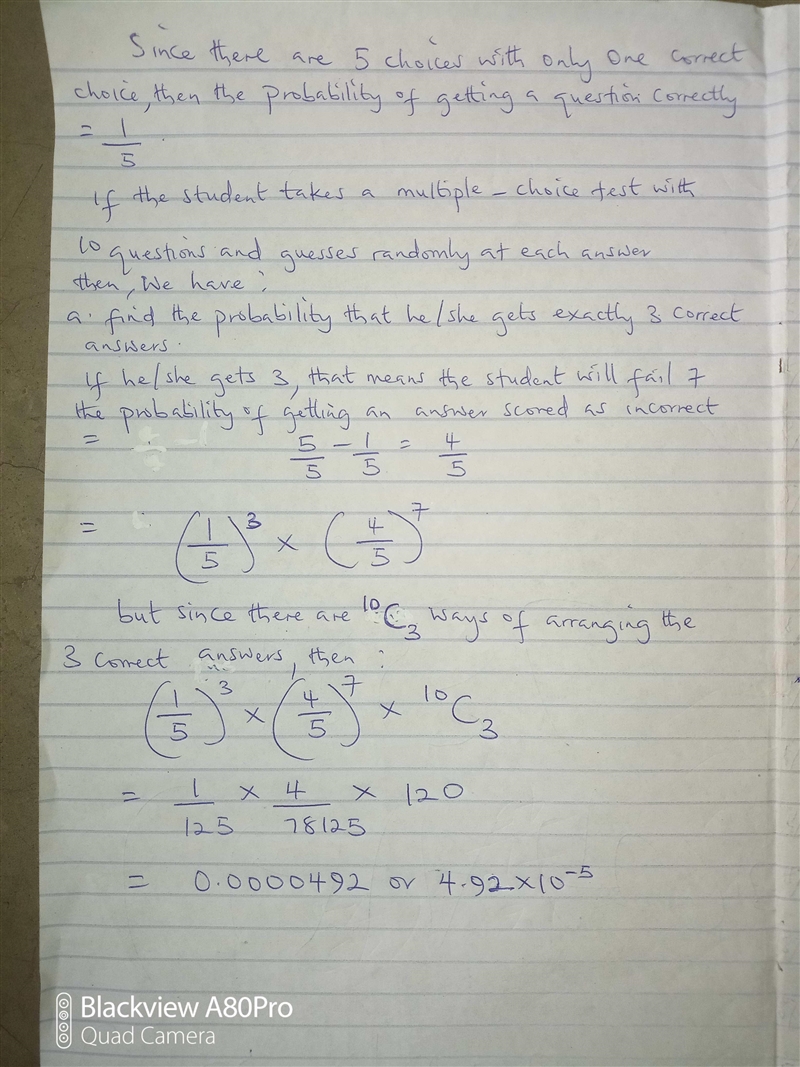 Since there are 5 choices with only one correct
choice, then the probability of getting a question correctly
= 1/5.
If the student takes a multiple - choice test with
10 questions and guesses randomly at each answer
then, We have :
a. find the probability that he/she gets exactly 3 correct
answers.
If he/she gets 3, that means the student will fail 7
the probability of getting an answer scored as incorrect
= 5/5 - 1/5 = 4/5
= (1/5)^3 × (4/5)^7
but since there are ¹⁰C₃ ways of arranging the
3 correct answers, then :
(1/5)^3 × (4/5)^7 × ¹⁰C₃
= 1/125 × 4/78125 × 120
= 0.0000492 or 4.92×10⁻⁵
Blackview A80Pro
Quad Camera